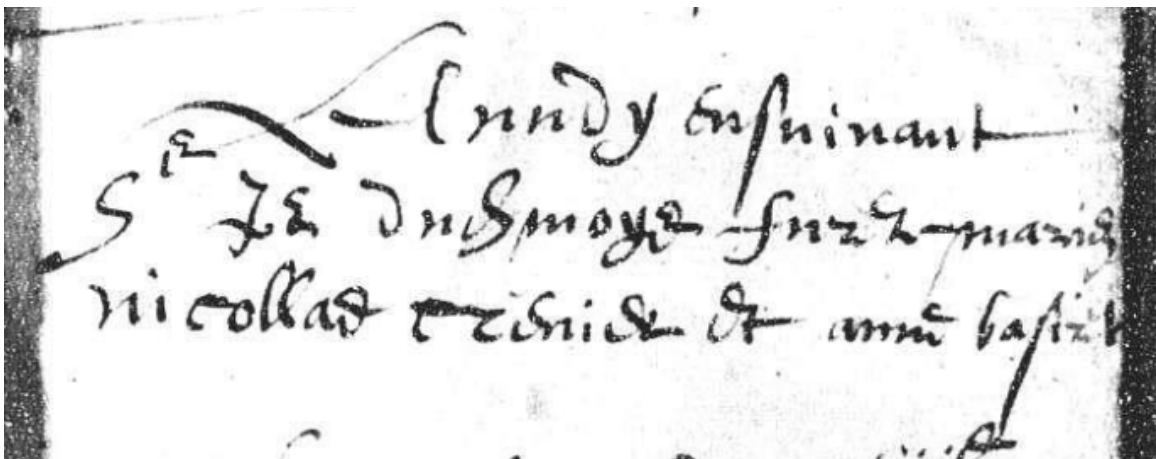 Lundy ensuivant
9e Je dud moys furet mariés
nicollas crevier et anne basire